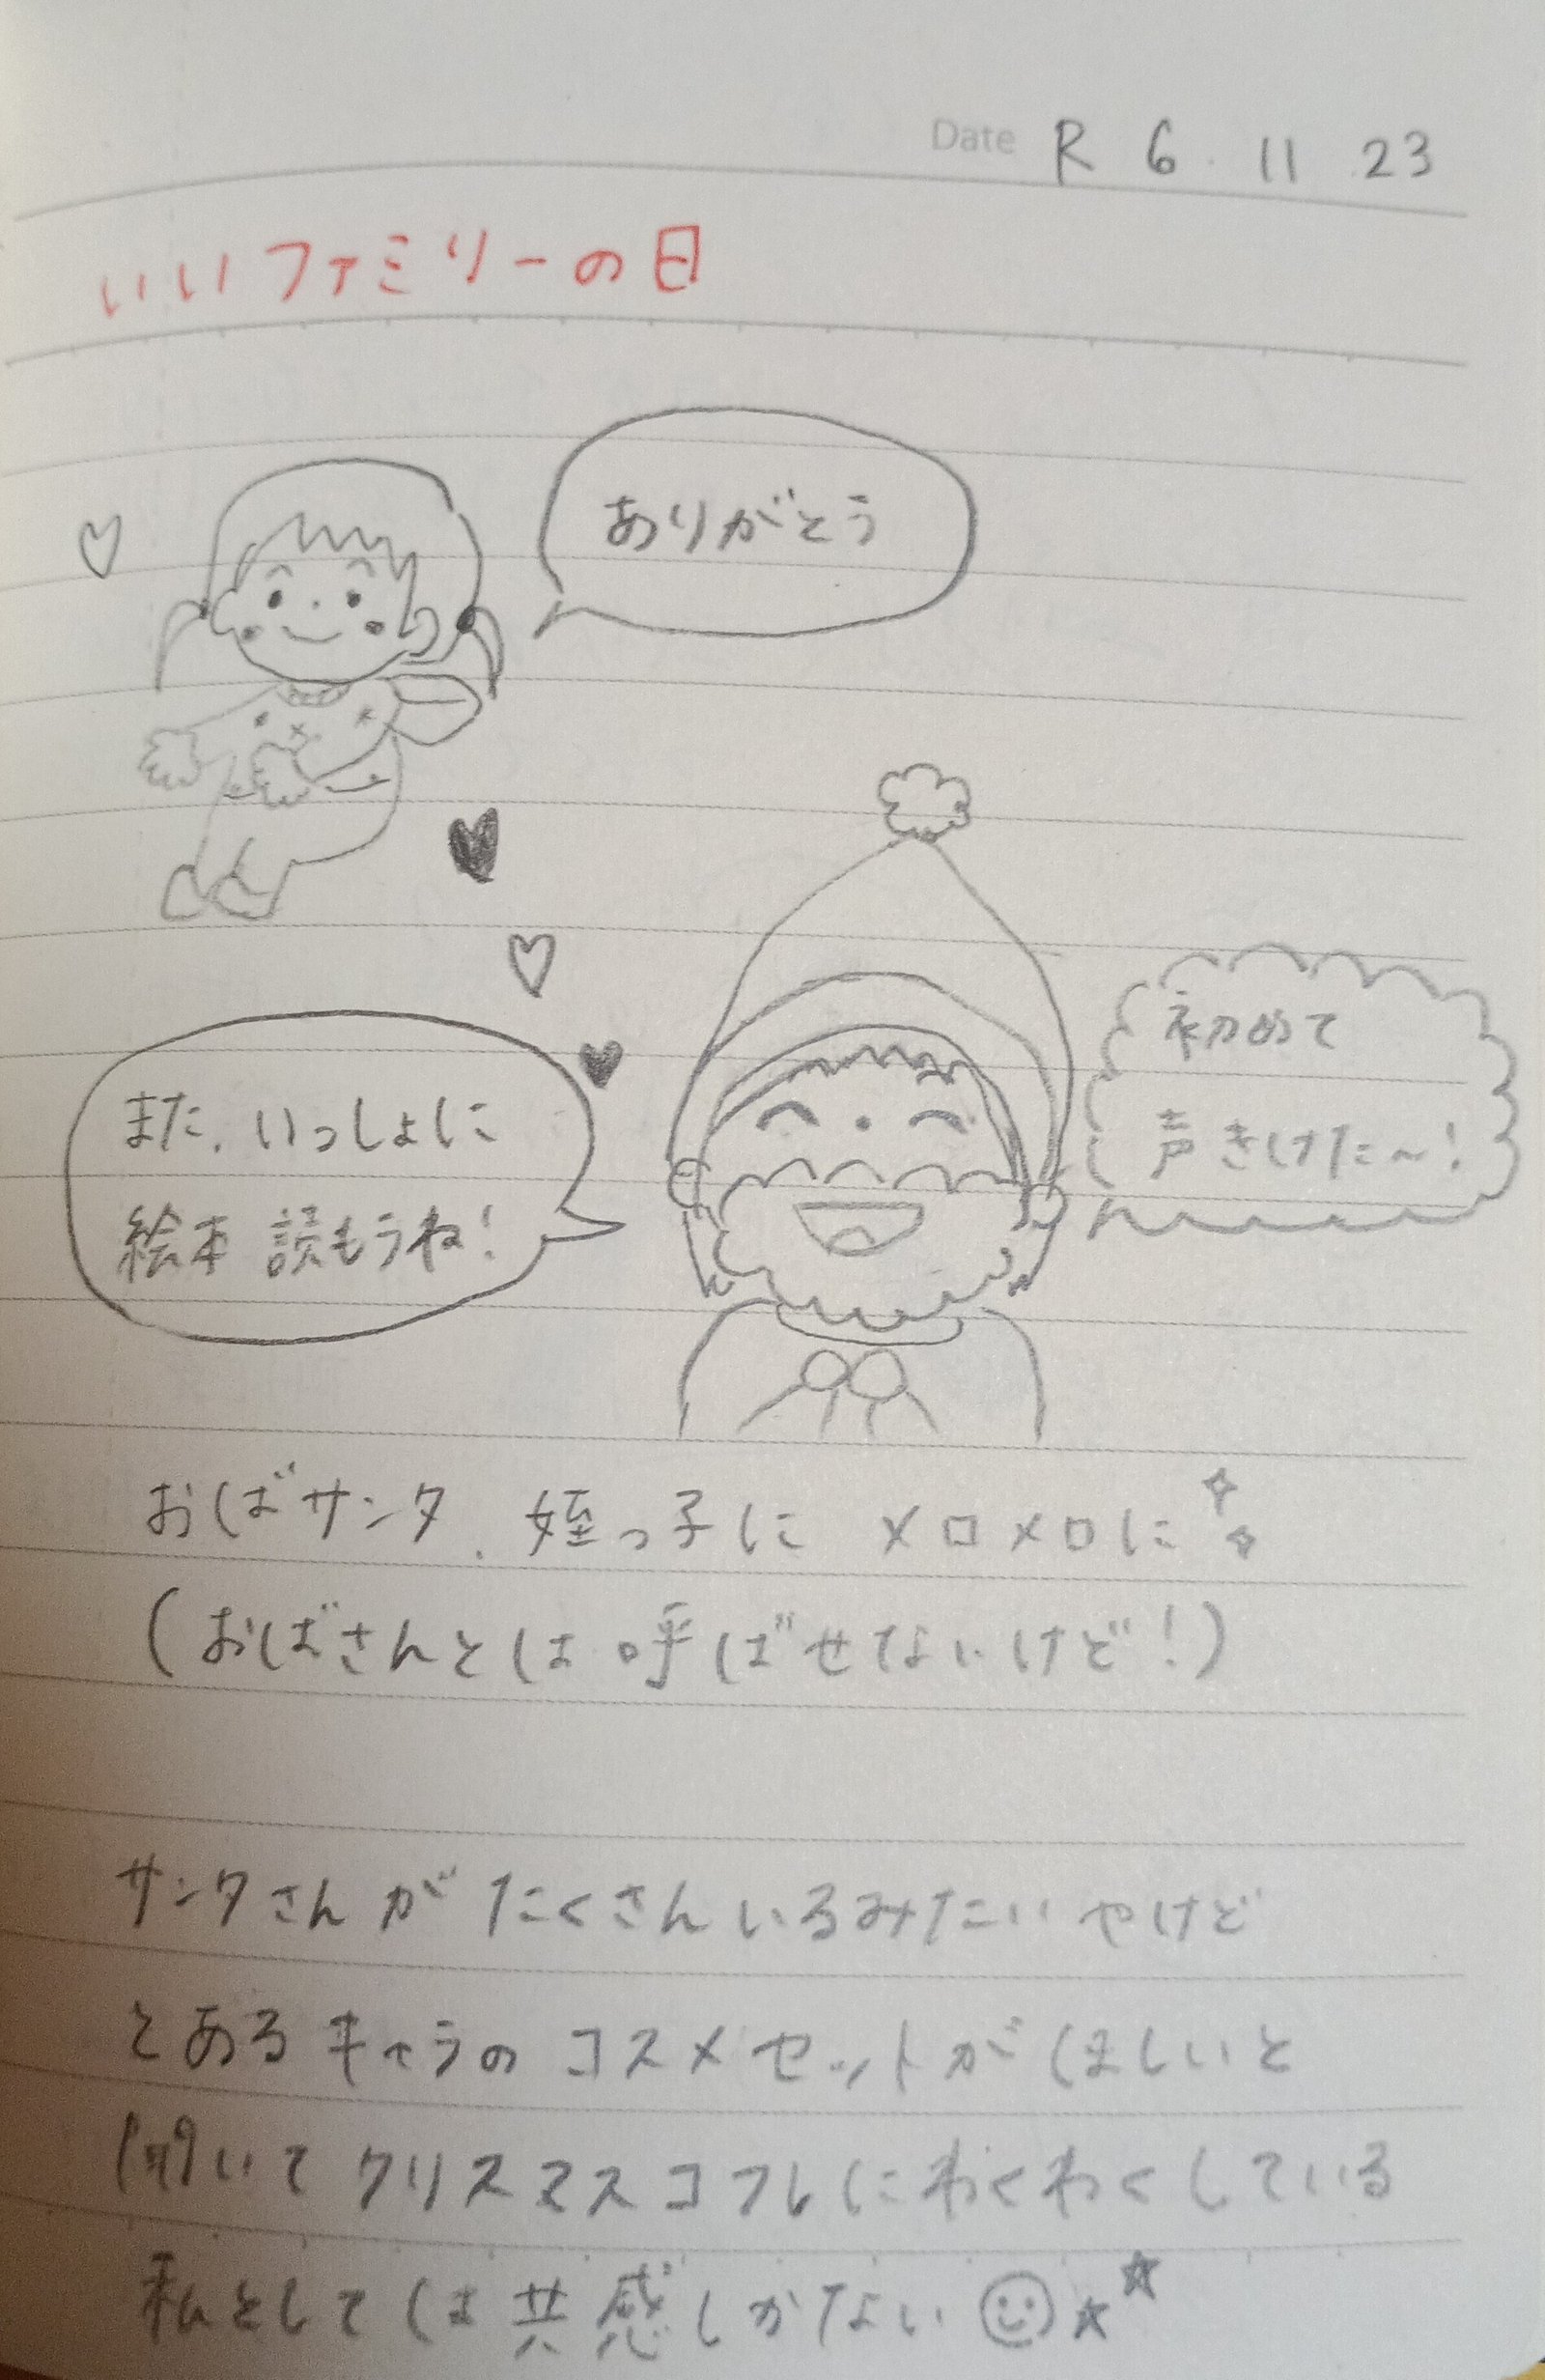 Date R 6. 11 23
いいファミリーの日
ありがとう
初めて
声きけた~!
また、いっしょに
絵本 読もうね!
おばサンタ、姪っ子に メロメロに
(おばさんとは呼ばせないけど!)
サンタさんが たくさんいるみたいやけど
とあるキャラの コスメセットがほしいと
聞いて クリスマスコフレにわくわくしている
私としては共感しかない